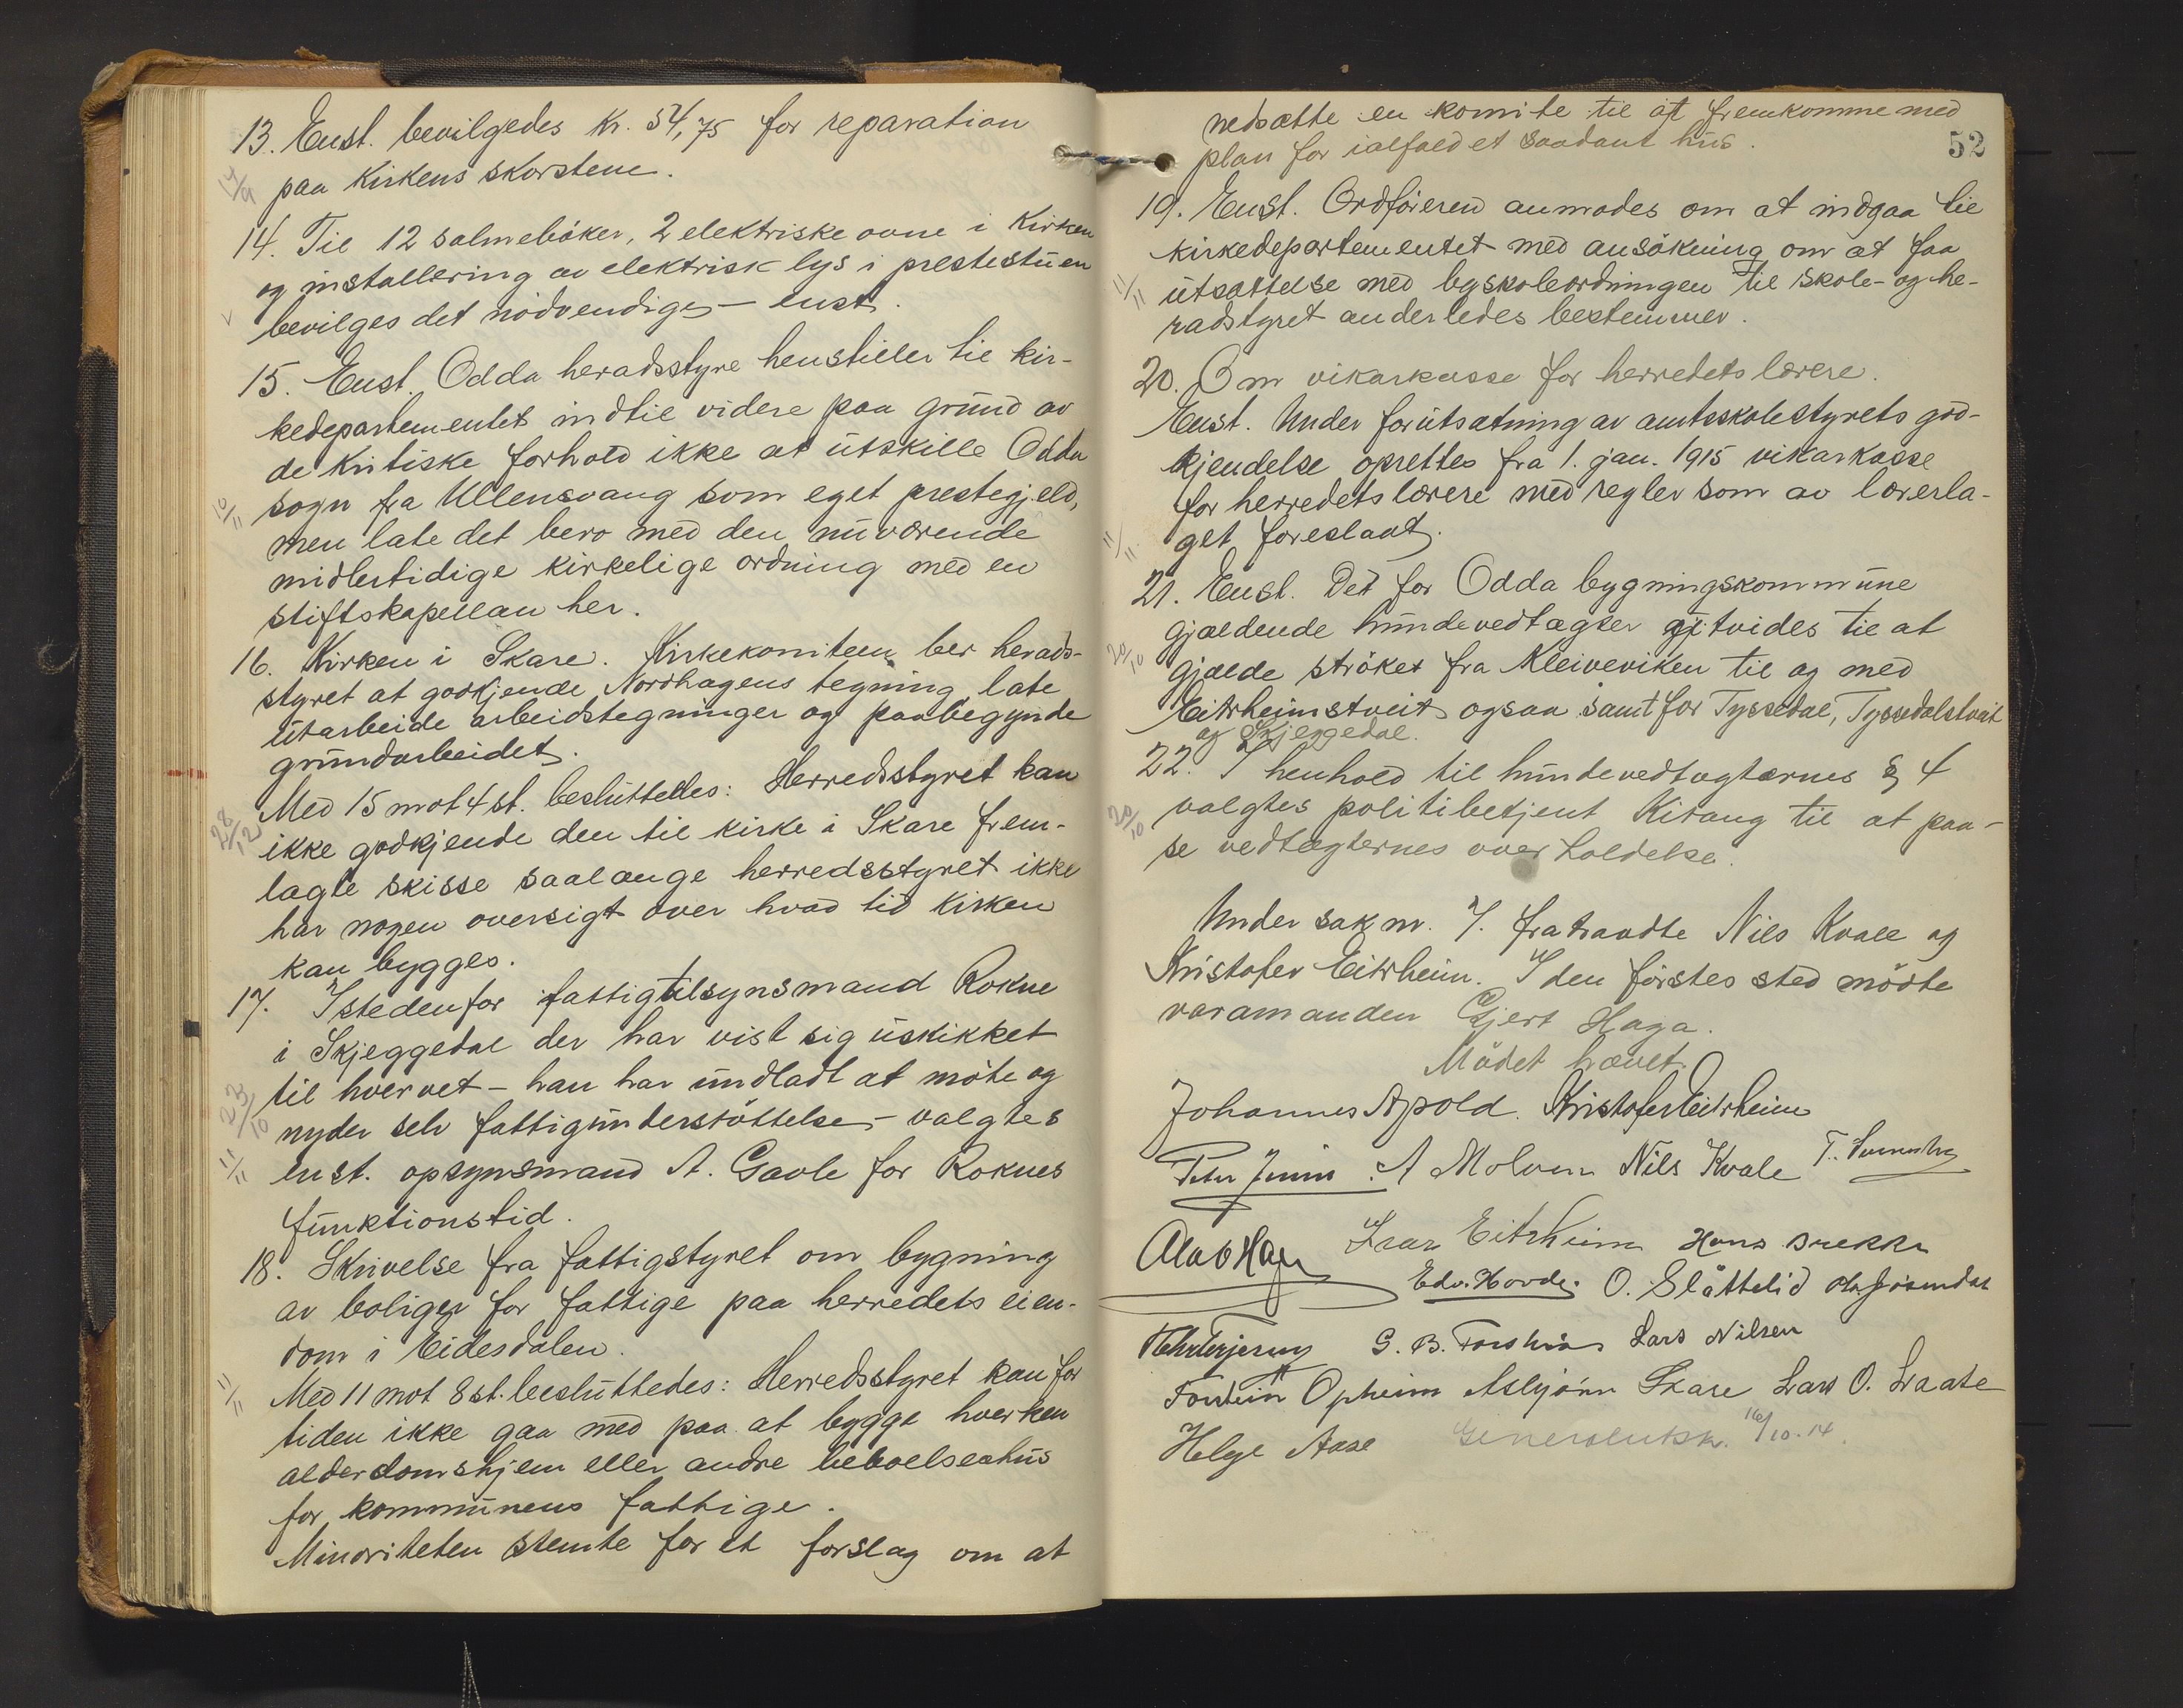 13. Enst. bevilgedes kr. 54,75 for reparation
14/9 paa kirkens skorstene.
14. Til 12 salmebøker, 2 elektriske ovne i kirken
og installering av elektrisk lys i prestestuen
bevilges det nødvendige – enst.
15. Enst. Odda heradsstyre henstiller til kir-
kedepartementet indtil videre paa grund av
de kritiske forhold ikke at utskille Odda
10/11 sogn fra Ullensvang som eget prestegjeld,
men late det bero med den nuværende
midlertidige kirkelige ordning med en
stiftskapellan her.
16. Kirken i Skare. Kirkekomiteen ber herads-
styret at godkjende Nordhagens tegning, late
utarbeide arbeidstegninger og paabegynde
grundarbeidet.
Med 15 mot 4 st. besluttedes: Herredsstyret kan
28/12 ikke godkjende den til kirke i Skare frem-
lagte skisse saalange herredsstyret ikke
har nogen oversigt over hvad tid kirken
kan bygges.
17. Istedenfor fattigtilsynsmand Rokne
i Skjeggedal der har vist sig uskikket
til hvervet – han har undladt at møte og
23/10 nyder selv fattigunderstøttelse – valgtes
11/11 enst. opsynsmand A. Gavle for Roknes
funktionstid.
18. Skrivelse fra fattigstyret om bygning
av boliger for fattige paa herredets eien-
dom i Eidesdalen.
11/11 Med 11 mot 8 st. besluttedes: Herredsstyret kan for
tiden ikke gaa med paa at bygge hverken
alderdomshjem eller andre beboelseshus
for kommunens fattige.
Minoriteten stemte for et forslag om at
52
nedsætte en komite til at fremkomme med
plan for ialfald et saadant hus.
19. Enst. Ordføreren anmodes om at indgaa til
kirkedepartementet med ansøkning om at faa
11/11 utsættelse med byskoleordningen til skole- og he-
radstyret anderledes bestemmer.
20. Om vikarkasse for herredets lærere.
Enst. Under forutsætning av amtsskolestyrets god-
kjendelse oprettes fra 1. jan. 1915 vikarkasse
for herredets lærere med regler som av lærerla-
11/11 get foreslaat.
21. Enst. Det for Odda bygningskommune
gjældende hundevedtægter utvides til at
20/10 gjælde strøket fra Kleiveviken til og med
Eitrheimstveit ogsaa samt for Tyssedal, Tyssedalstveit
og Skjeggedal.
22. I henhold til hundevedtægternes § 4
20/10 valgtes politibetjent Kitang til at paa-
se vedtægternes overholdelse.
Under sak nr. 7. fratraadte Nils Kvale og
Kristofer Eitrheim. I den førstes sted mødte
varamanden Gjert Haga.
Mødet hævet.
Johannes Apold. Kristofer Eitrheim
Peter Jenins. A Molven Nils Kvale
Olav Haga Lars Eitrheim Hans Brekke
Edv. Hovde. O. Slåttelid
G. B. Lars Nilsen
Torstein Opheim Asbjørn Skare Lars O. Laate
Helge Aase Generalutsk. 16/10.14.